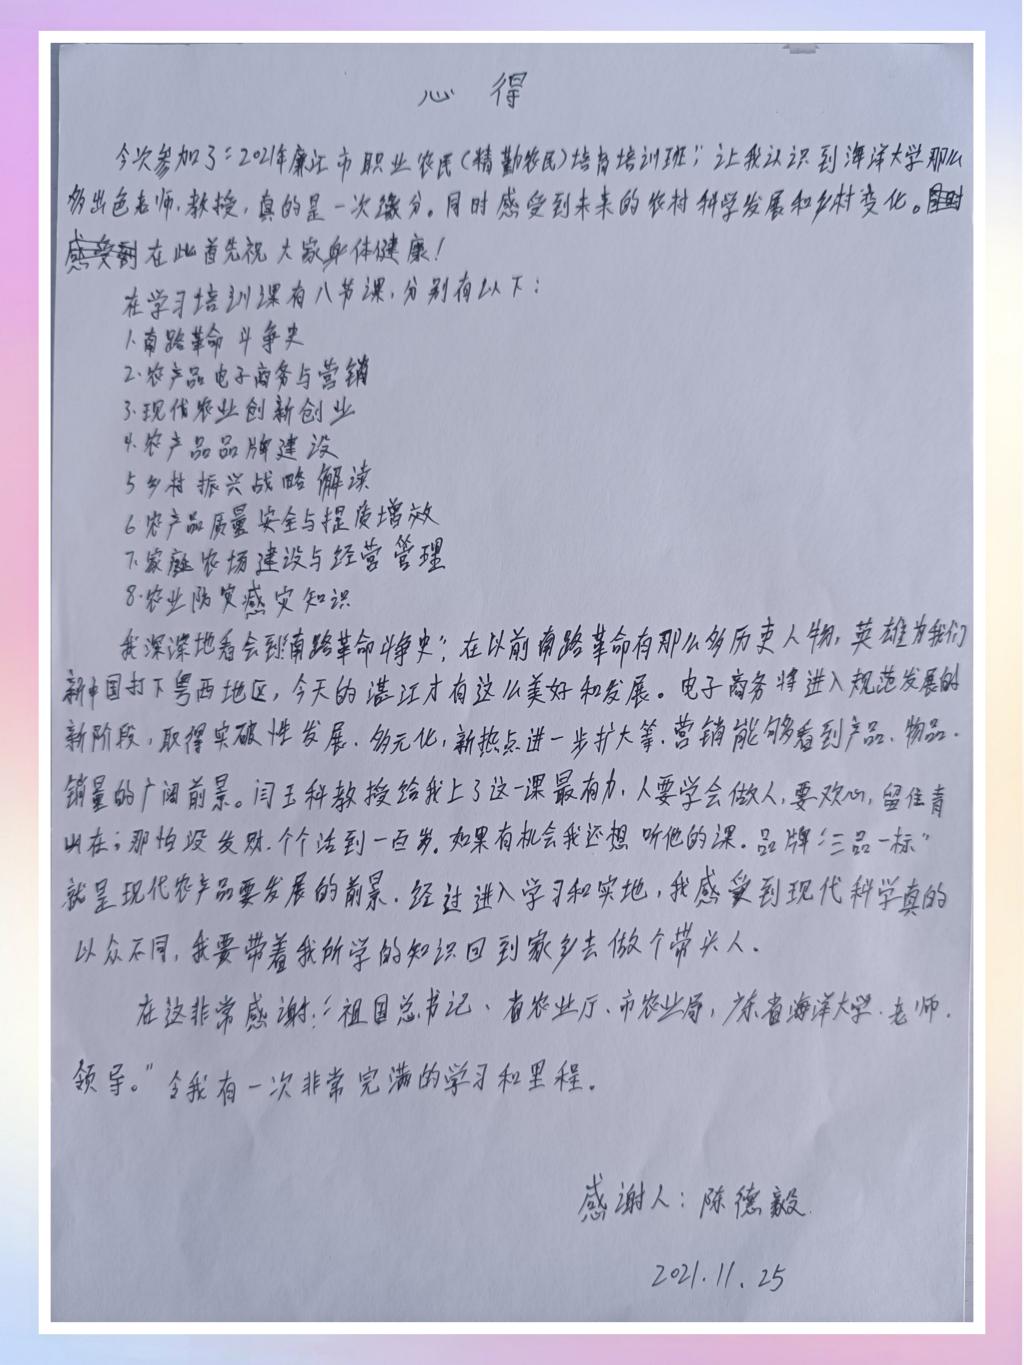 心 得
今次参加了“2021年廉江市职业农民(精勤农民)培育培训班”让我认识到海洋大学那么
多出色老师、教授，真的是一次缘分。同时感受到未来的农村科学发展和乡村变化。
在此首先祝大家身体健康！
在学习培训课有八节课，分别有以下：
1.南路革命斗争史
2.农产品电子商务与营销
3.现代农业创新创业
4.农产品品牌建设
5乡村振兴战略解读
6农产品质量安全与提质增效
7.家庭农场建设与经营管理
8.农业防灾感灾知识
我深深地看会到“南路革命斗争史”，在以前南路革命有那么多历吏人物，英雄为我们
新中国打下粤西地区，今天的湛江才有这么美好和发展。电子商务将进入规范发展的
新阶段，取得突破性发展、多元化，新热点进一步扩大等、营销能够看到产品、物品、
销量的广阔前景。闫玉科教授给我上了这一课最有力，人要学会做人，要欢心，留住青
山在；那怕没发财、个个活到一百岁。如果有机会我还想听他的课。品牌“三品一标”
就是现代农产品要发展的前景。经过进入学习和实地，我感受到现代科学真的
以众不同，我要带着我所学的知识回到家乡去做个带头人。
在这非常感谢：“祖国总书记、省农业厅、市农业局，广东省海洋大学、老师、
领导。”令我有一次非常完满的学习和里程。
感谢人：陈德毅
2021.11.25